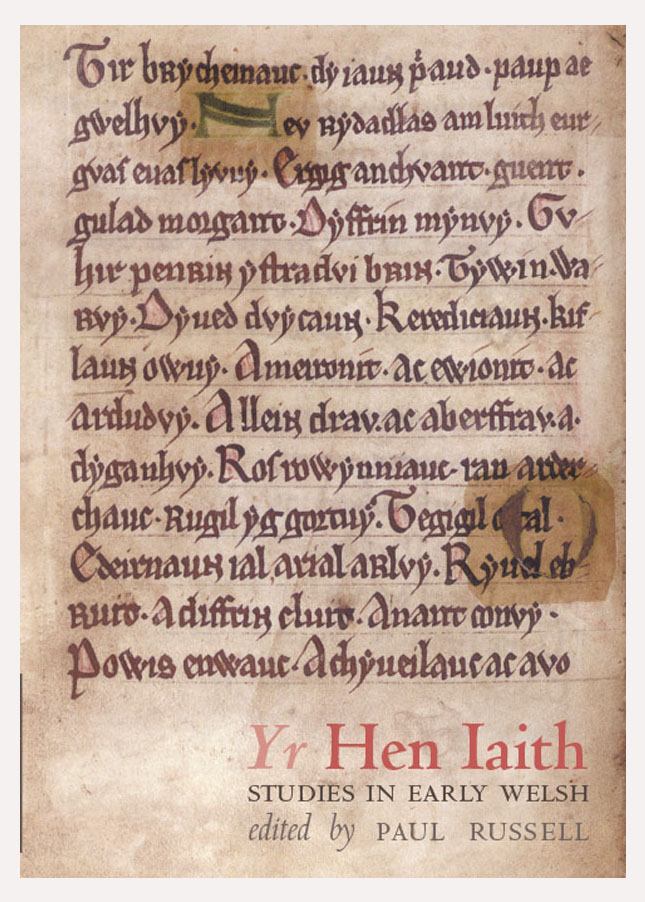 Tir brẏcheinauc · dẏ iaun ṗaud · paup ae
gwelhvẏ · Nev rẏdadlas am luith eur
gvas euas lẏvvẏ · Ergig anchvant · guent ·
gulad morgant · Dẏffrin mẏnvẏ · Gv
hir penrin ẏstradvi brin · Tẏwin · Wa
rvẏ · Dẏued dvẏcaun · Kerediciaun · kif
laun owuẏ · A meironit · ac ewionit · ac
ardudvẏ · A llein drav · ac aberffrav · a ·
dẏganhvẏ · Ros rowẏnniauc ran arder
chauc · Rugil ẏg gortuẏ · Tegigil
Edeirnaun ial arial arlvẏ · Rẏuel eb
ruit · A diffrin cluit · A nant convẏ ·
Powis enwauc · A chẏueilauc ac avo
Yr Hen Iaith
STUDIES IN EARLY WELSH
edited by PAUL RUSSELL